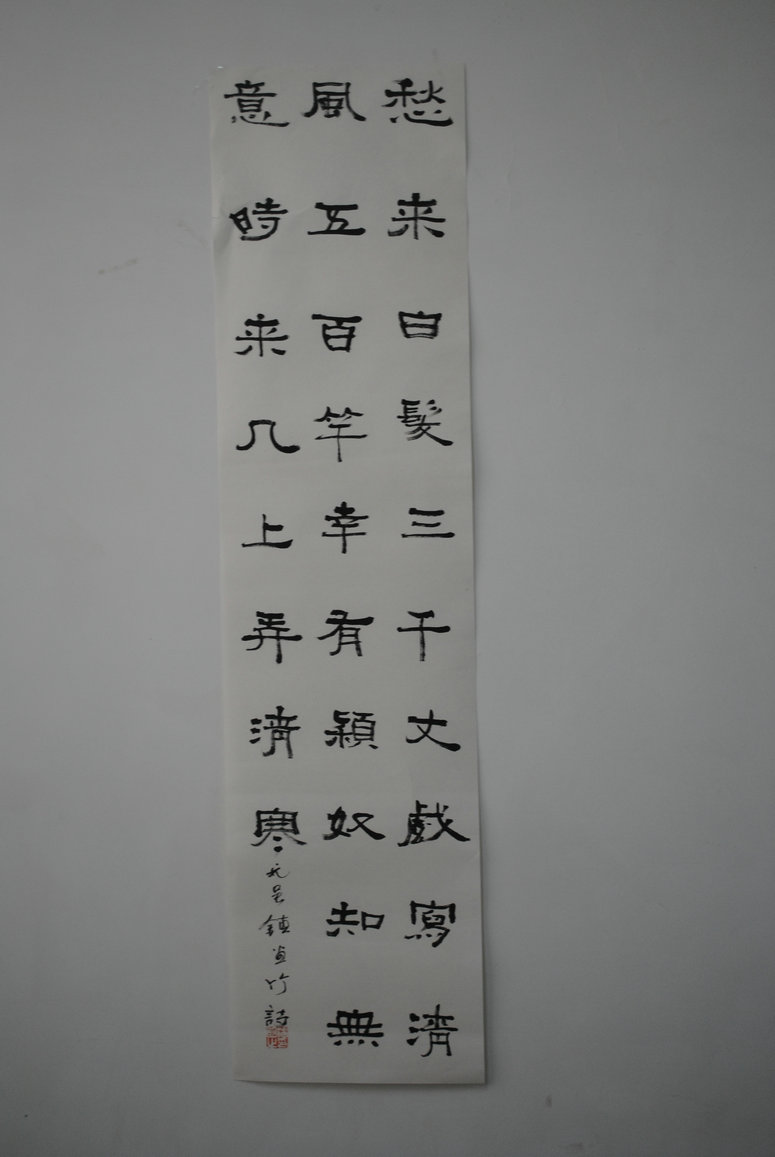 愁来白髮三千丈戲寫清
風五百竿幸有穎奴知無
意時来几上弄清寒
元吳鎮畫竹詩